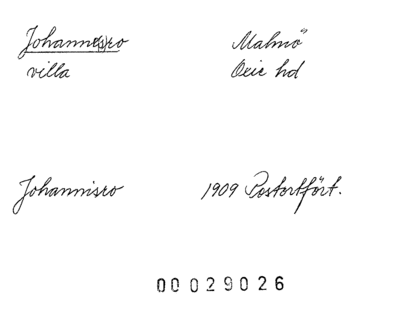 Johannesro Malmö
villa Oxie hd
Johannisro 1909 Postortfört.
00029026